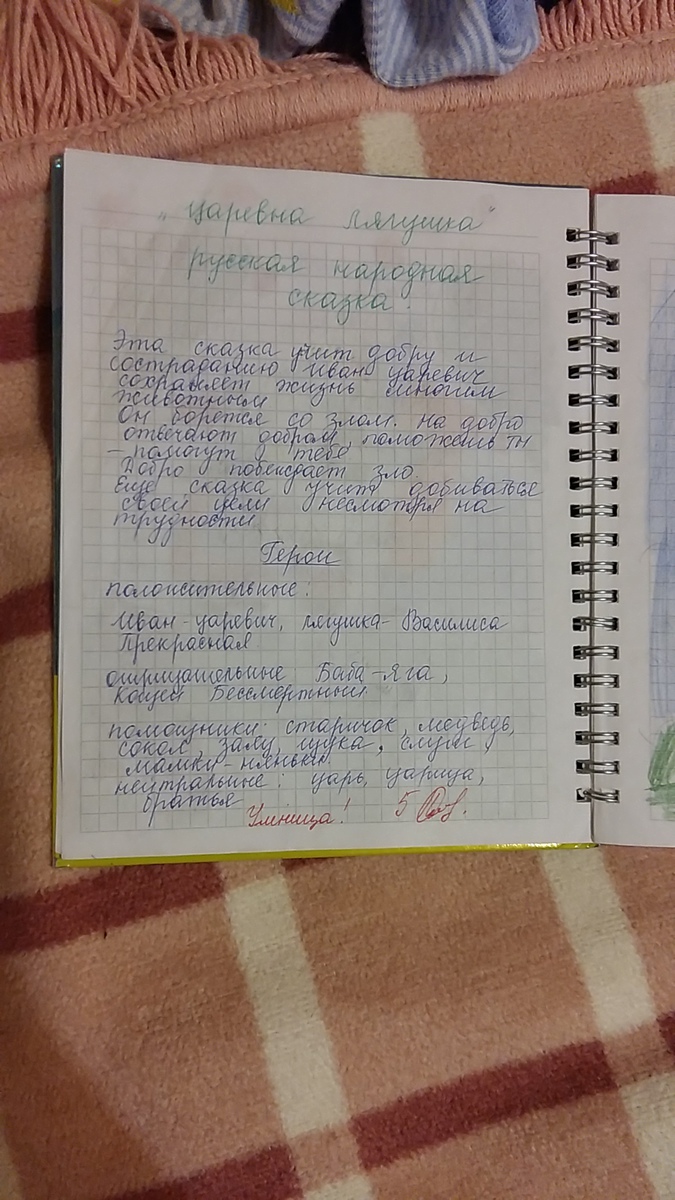 „Царевна лягушка"
русская народная
сказка.
Эта сказка учит добру и
состраданию Иван царевич
сохраняет жизнь многим
животным
Он борется со злом. на добро
отвечают добром, поможешь ты
– помогут и тебе
Добро побеждает зло.
Еще сказка учит добиваться
своей цели несмотря на
трудности
Герои
положительные:
Иван-царевич, лягушка-Василиса
Прекрасная
отрицательные Баба-яга,
Кощей Бессмертный
помощники: старичок, медведь,
сокол, заяц, щука, слуги
мамки-няньки
нейтральные: царь, царица,
братья
Умница! 5